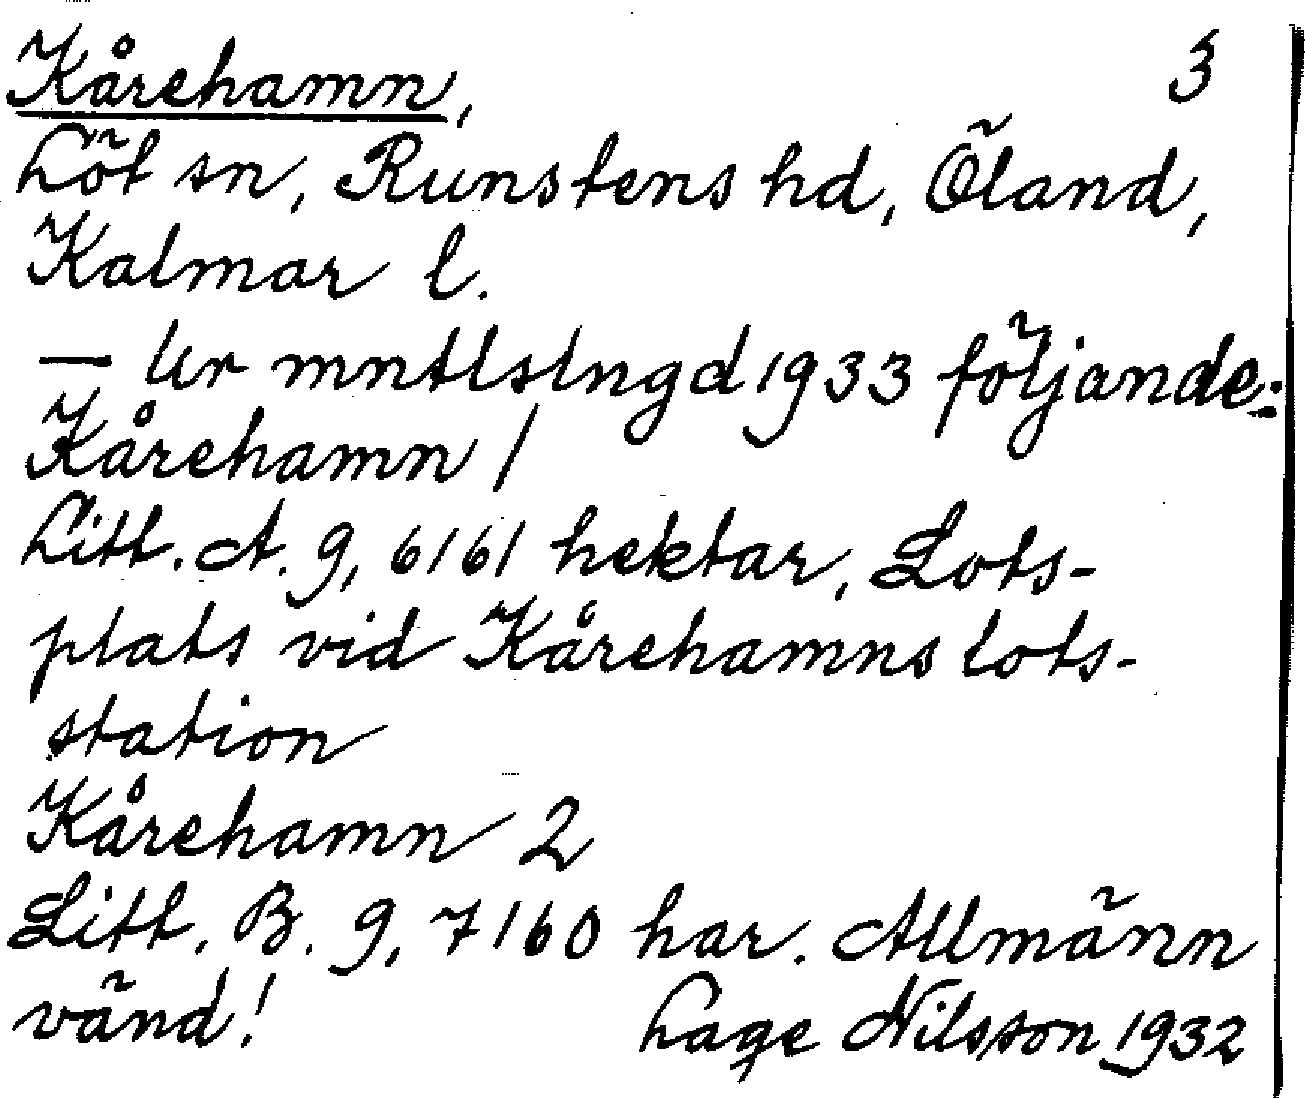 Kårehamn, 3
Löt sn, Runstens hd, Öland,
Kalmar l.
— Ur mntlslngd 1933 följande:
Kårehamn 1
Litt. A. 9, 6161 hektar, Lots-
plats vid Kårehamns lots-
station
Kårehamn 2
Litt. B. 9, 7160 har. Allmänn
vänd! Lage Nilsson 1932